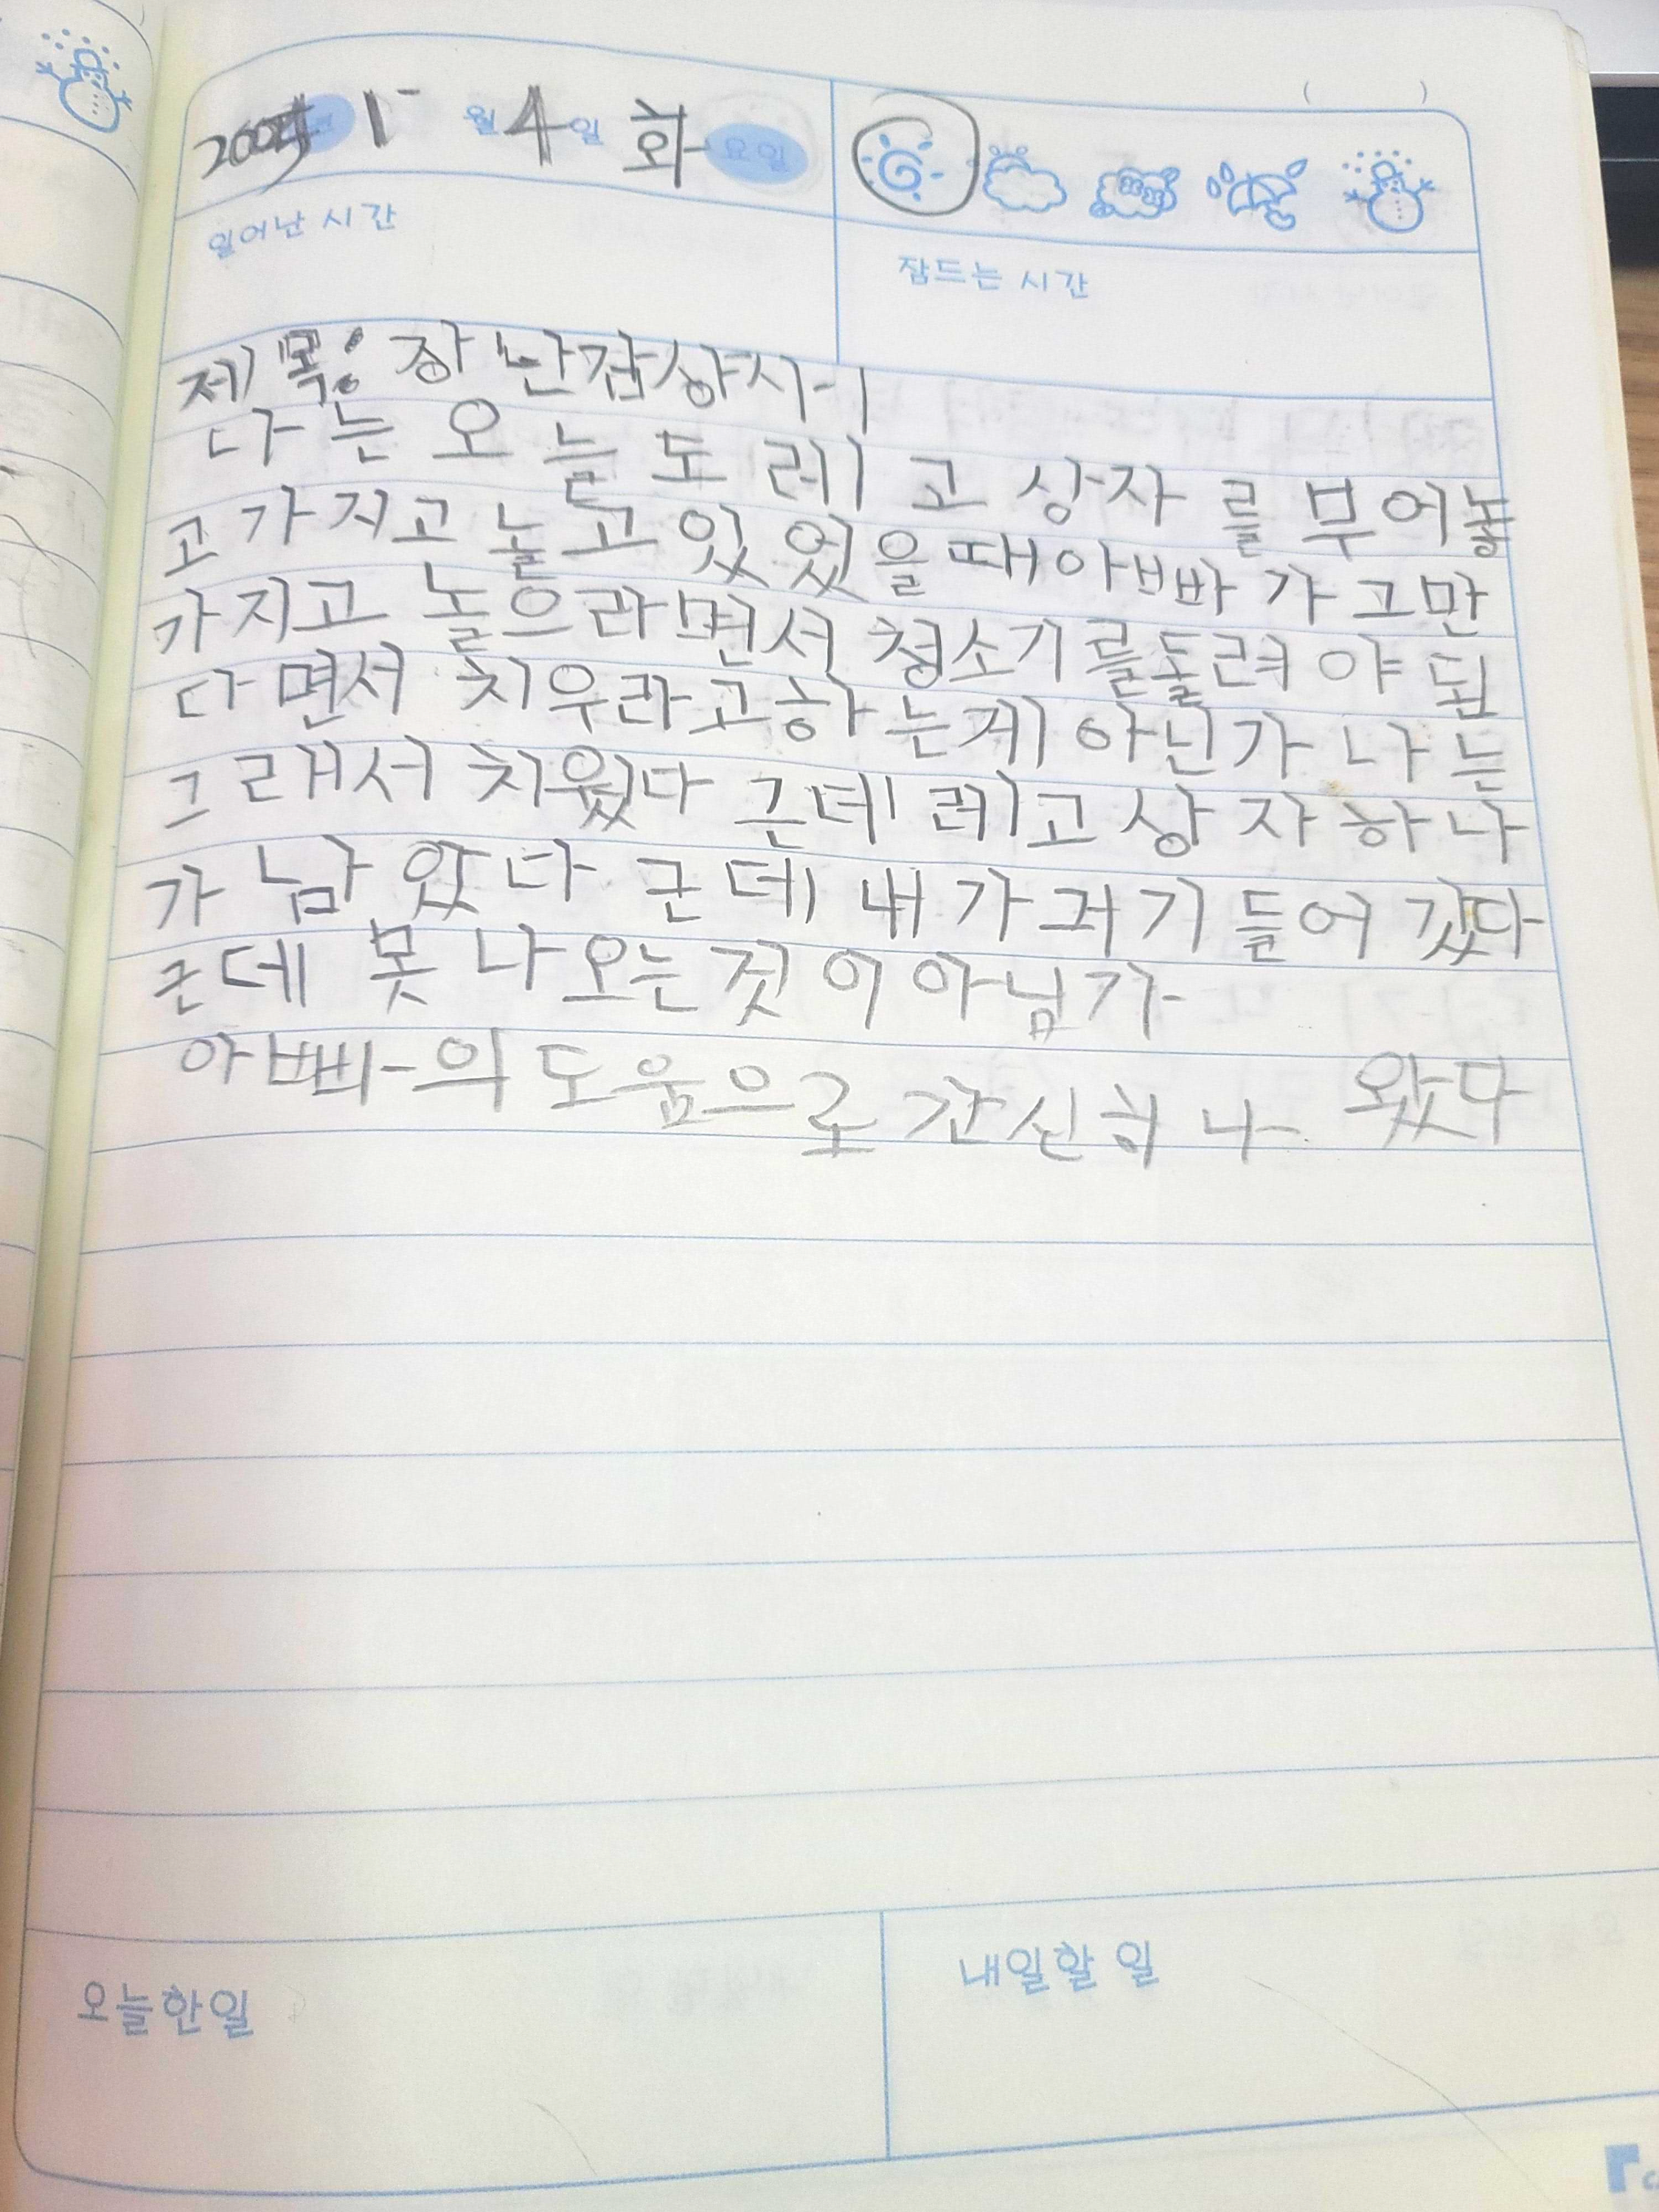 2005 1 월 4 일 화 요일
일어난 시간
잠드는 시간
제목: 장난감상자
나는 오늘도 레고 상자를 부어놓
고 가지고 놀고 있었을때 아빠가 그만
가지고 놀으라면서 청소기를돌려야 된
다면서 치우라고하는게 아닌가 나는
그래서 치웠다 근데 레고상자 하나
가 남았다 근데 내가 거기 들어 갔다
근데 못 나오는것이 아님가
아빠의 도움으로 간신히 나왔다
오늘한일
내일할 일